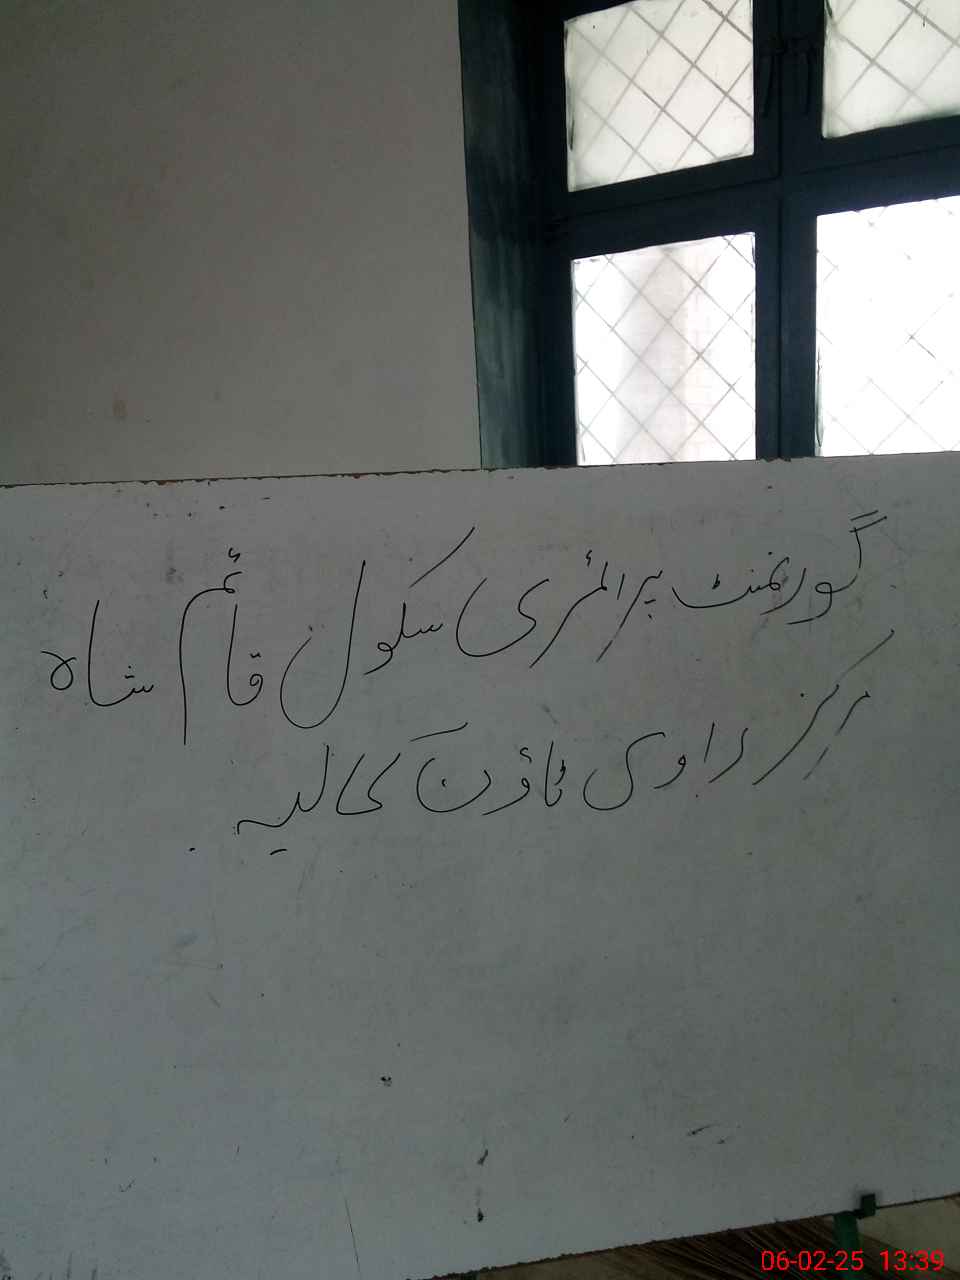 گورنمنٹ پرائمری سکول قائم شاہ
مرکز راوی ٹاؤن کمالیہ
06-02-25 13:39